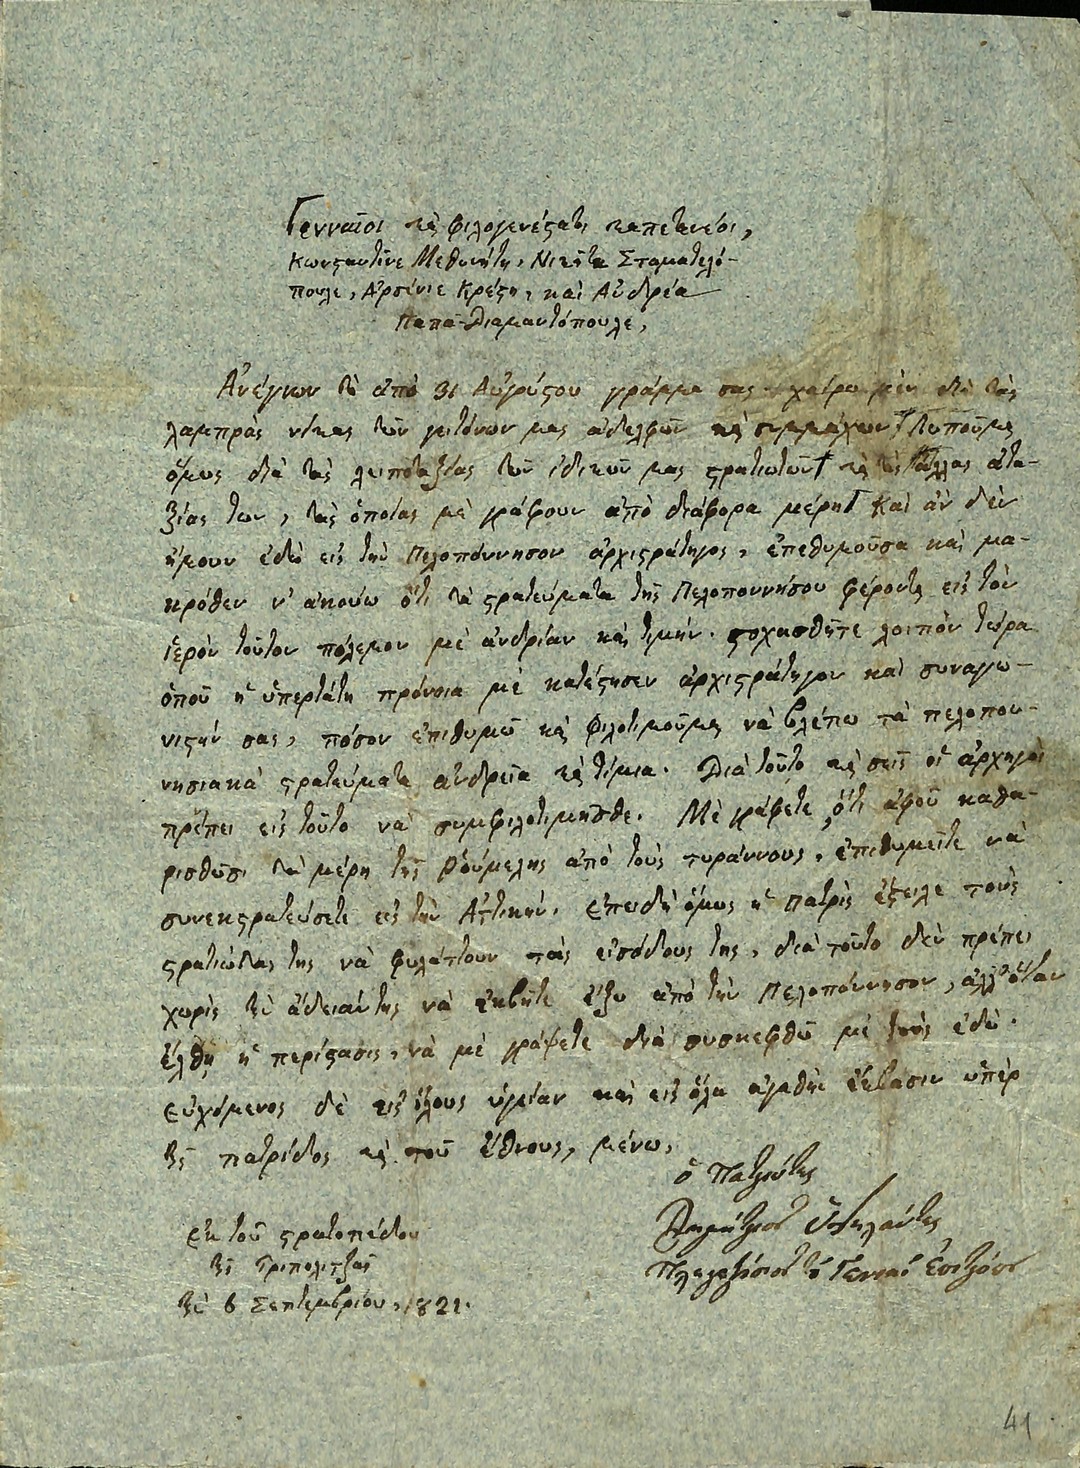 Γενναῖοι καὶ φιλογενέστατοι καπετανέοι,
Κωνσταντῖνε Μεθενίτη, Νικήτα Σταματελό-
πουλε, Ἀρσένιε Κρέστη, καὶ Ἀνδρέα
Παπα-Διαμαντόπουλε,
Ἀνέγνων τὸ ἀπὸ 31 Αὐγούστου γράμμα σας χαίρω μὲν διὰ τὰς
λαμπρὰς νίκας τῶν γειτόνων μας ἀδελφῶν καὶ συμμάχων, λυποῦμαι
ὅμως διὰ τὰς λειποταξίας τῶν ἰδικῶν μας στρατιωτῶν καὶ τὰς ἄλλας ἀτα-
ξίας των, τὰς ὁποίας μὲ γράφουν ἀπὸ διάφορα μέρη. Καὶ ἂν δὲν
ἤμουν ἐδὼ εἰς τὴν Πελοπόννησον ἀρχιστράτηγος, ἐπεθυμοῦσα καὶ μα-
κρόθεν ν' ἀκούω ὅτι τὰ στρατεύματα τῆς Πελοποννήσου φέρονται εἰς τὸν
ἱερὸν τοῦτον πόλεμον μὲ ἀνδρίαν καὶ τιμήν. στοχασθῆτε λοιπὸν τώρα
ὁποῦ ἡ ὑπερτάτη πρόνοια μὲ κατέστησεν ἀρχιστράτηγον καὶ συναγω-
νιστήν σας, πόσον ἐπιθυμῶ καὶ φιλοτιμοῦμαι νὰ βλέπω τὰ πελοπον-
νησιακὰ στρατεύματα ἀνδρεῖα καὶ τίμια. Διὰ τοῦτο καὶ σεῖς οἱ ἀρχηγοὶ
πρέπει εἰς τοῦτο νὰ συμφιλοτιμῆσθε. Μὲ γράφετε, ὅτι ἀφοῦ καθα-
ρισθῶσι τὰ μέρη τῆς Ῥούμελης ἀπὸ τοὺς τυράννους, ἐπιθυμεῖτε νὰ
συνεκστρατεύσετε εἰς τὴν Ἀττικήν. ἐπειδὴ ὅμως ἡ πατρὶς ἔστειλε τοὺς
στρατιώτας της νὰ φυλάττουν τὰς εἰσόδους της, διὰ τοῦτο δὲν πρέπει
χωρὶς τὴν ἄδειάν της νὰ ἐκβῆτε ἔξω ἀπὸ τὴν Πελοπόννησον, ἀλλ' ὅταν
ἔλθῃ ἡ περίστασις, νὰ μὲ γράψετε διὰ νὰ συσκεφθῶ μὲ τοὺς ἐδώ.
εὐχόμενος δὲ εἰς ὅλους ὑγείαν καὶ εἰς ὅλα ἀγαθὴν ἔκβασιν ὑπὲρ
τῆς πατρίδος καὶ τοῦ ἔθνους, μένω,
ὁ πατριώτης
Δημήτριος Ὑψηλάντης
Πληρεξούσιος τοῦ Γενικοῦ Ἐπιτρόπου
Ἐκ τοῦ στρατοπέδου
τῆς Τριπολιτζᾶς
τῇ 6 Σεπτεμβρίου, 1821.
41